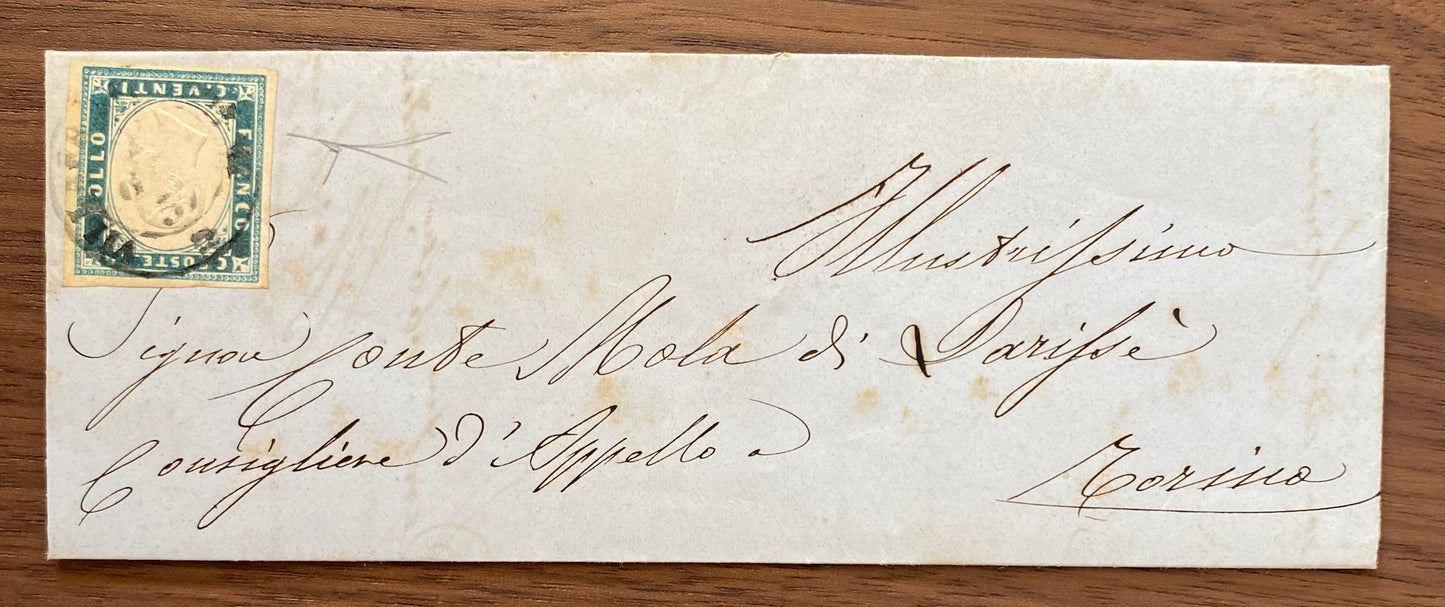 C. VENTI
FRANCO
BOLLO
C. POSTE
Illustrissimo
Signor Conte Mola di Larissè
Consigliere d'Appello a
Torino